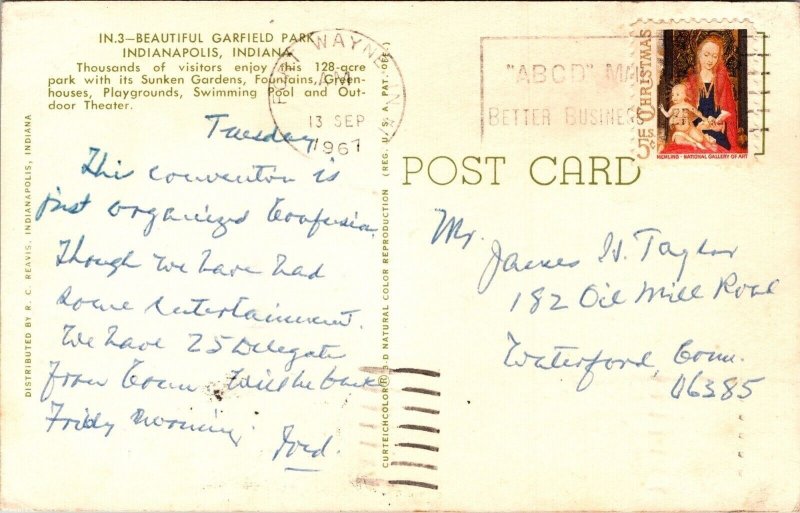 IN.3—BEAUTIFUL GARFIELD PARK
INDIANAPOLIS, INDIANA
Thousands of visitors enjoy this 128-acre
park with its Sunken Gardens, Fountains, Green-
houses, Playgrounds, Swimming Pool and Out-
door Theater.
Tuesday
This convention is
just organized Confusion.
Though we have had
some entertainment.
We have 25 Delegates
from Conn Will be back
Friday morning
DISTRIBUTED BY R. C. REAVIS, INDIANAPOLIS, INDIANA
CURTEICHCOLOR® 3-D NATURAL COLOR REPRODUCTION (REG. U. S. A. PAT. OFF.)
FORT WAYNE, IN
AM
13 SEP
1967
"ABCD"
BETTER BUSINESS
CHRISTMAS
5c US
MEMLING · NATIONAL GALLERY OF ART
POST CARD
Mr. James H. Taylor
182 Oil Mill Road
Waterford, Conn.
06385